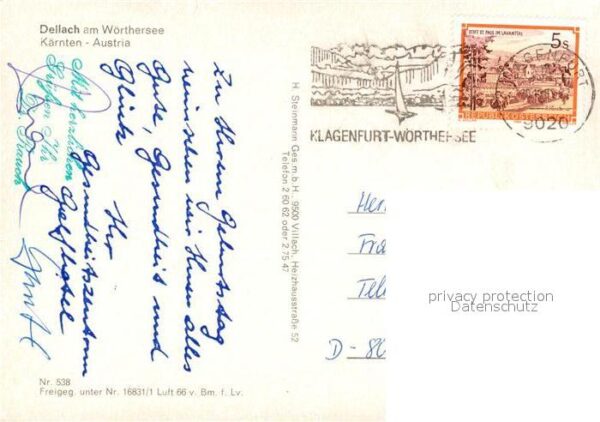 Dellach am Wörthersee
Kärnten - Austria
STIFT ST. PAUL IM LAVANTTAL
5s
REPUBLIK ÖSTERREICH
KLAGENFURT
9020
KLAGENFURT-WÖRTHERSEE
Zu Ihrem Geburtstag
wünschen wir Ihnen alles
Gute, Gesundheit und
Glück
Ihr
Gesundheitszentrum
Golfhotel
Mit herzlichen
Grüßen Ihr
H. Steinmann Ges.m.b.H. 9500 Villach, Heizhausstraße 52
Telefon 2 60 62 oder 2 75 47
He
Fra
Tel
D - 80
privacy protection
Datenschutz
Nr. 538
Freigeg. unter Nr. 16831/1 Luft 66 v. Bm. f. Lv.